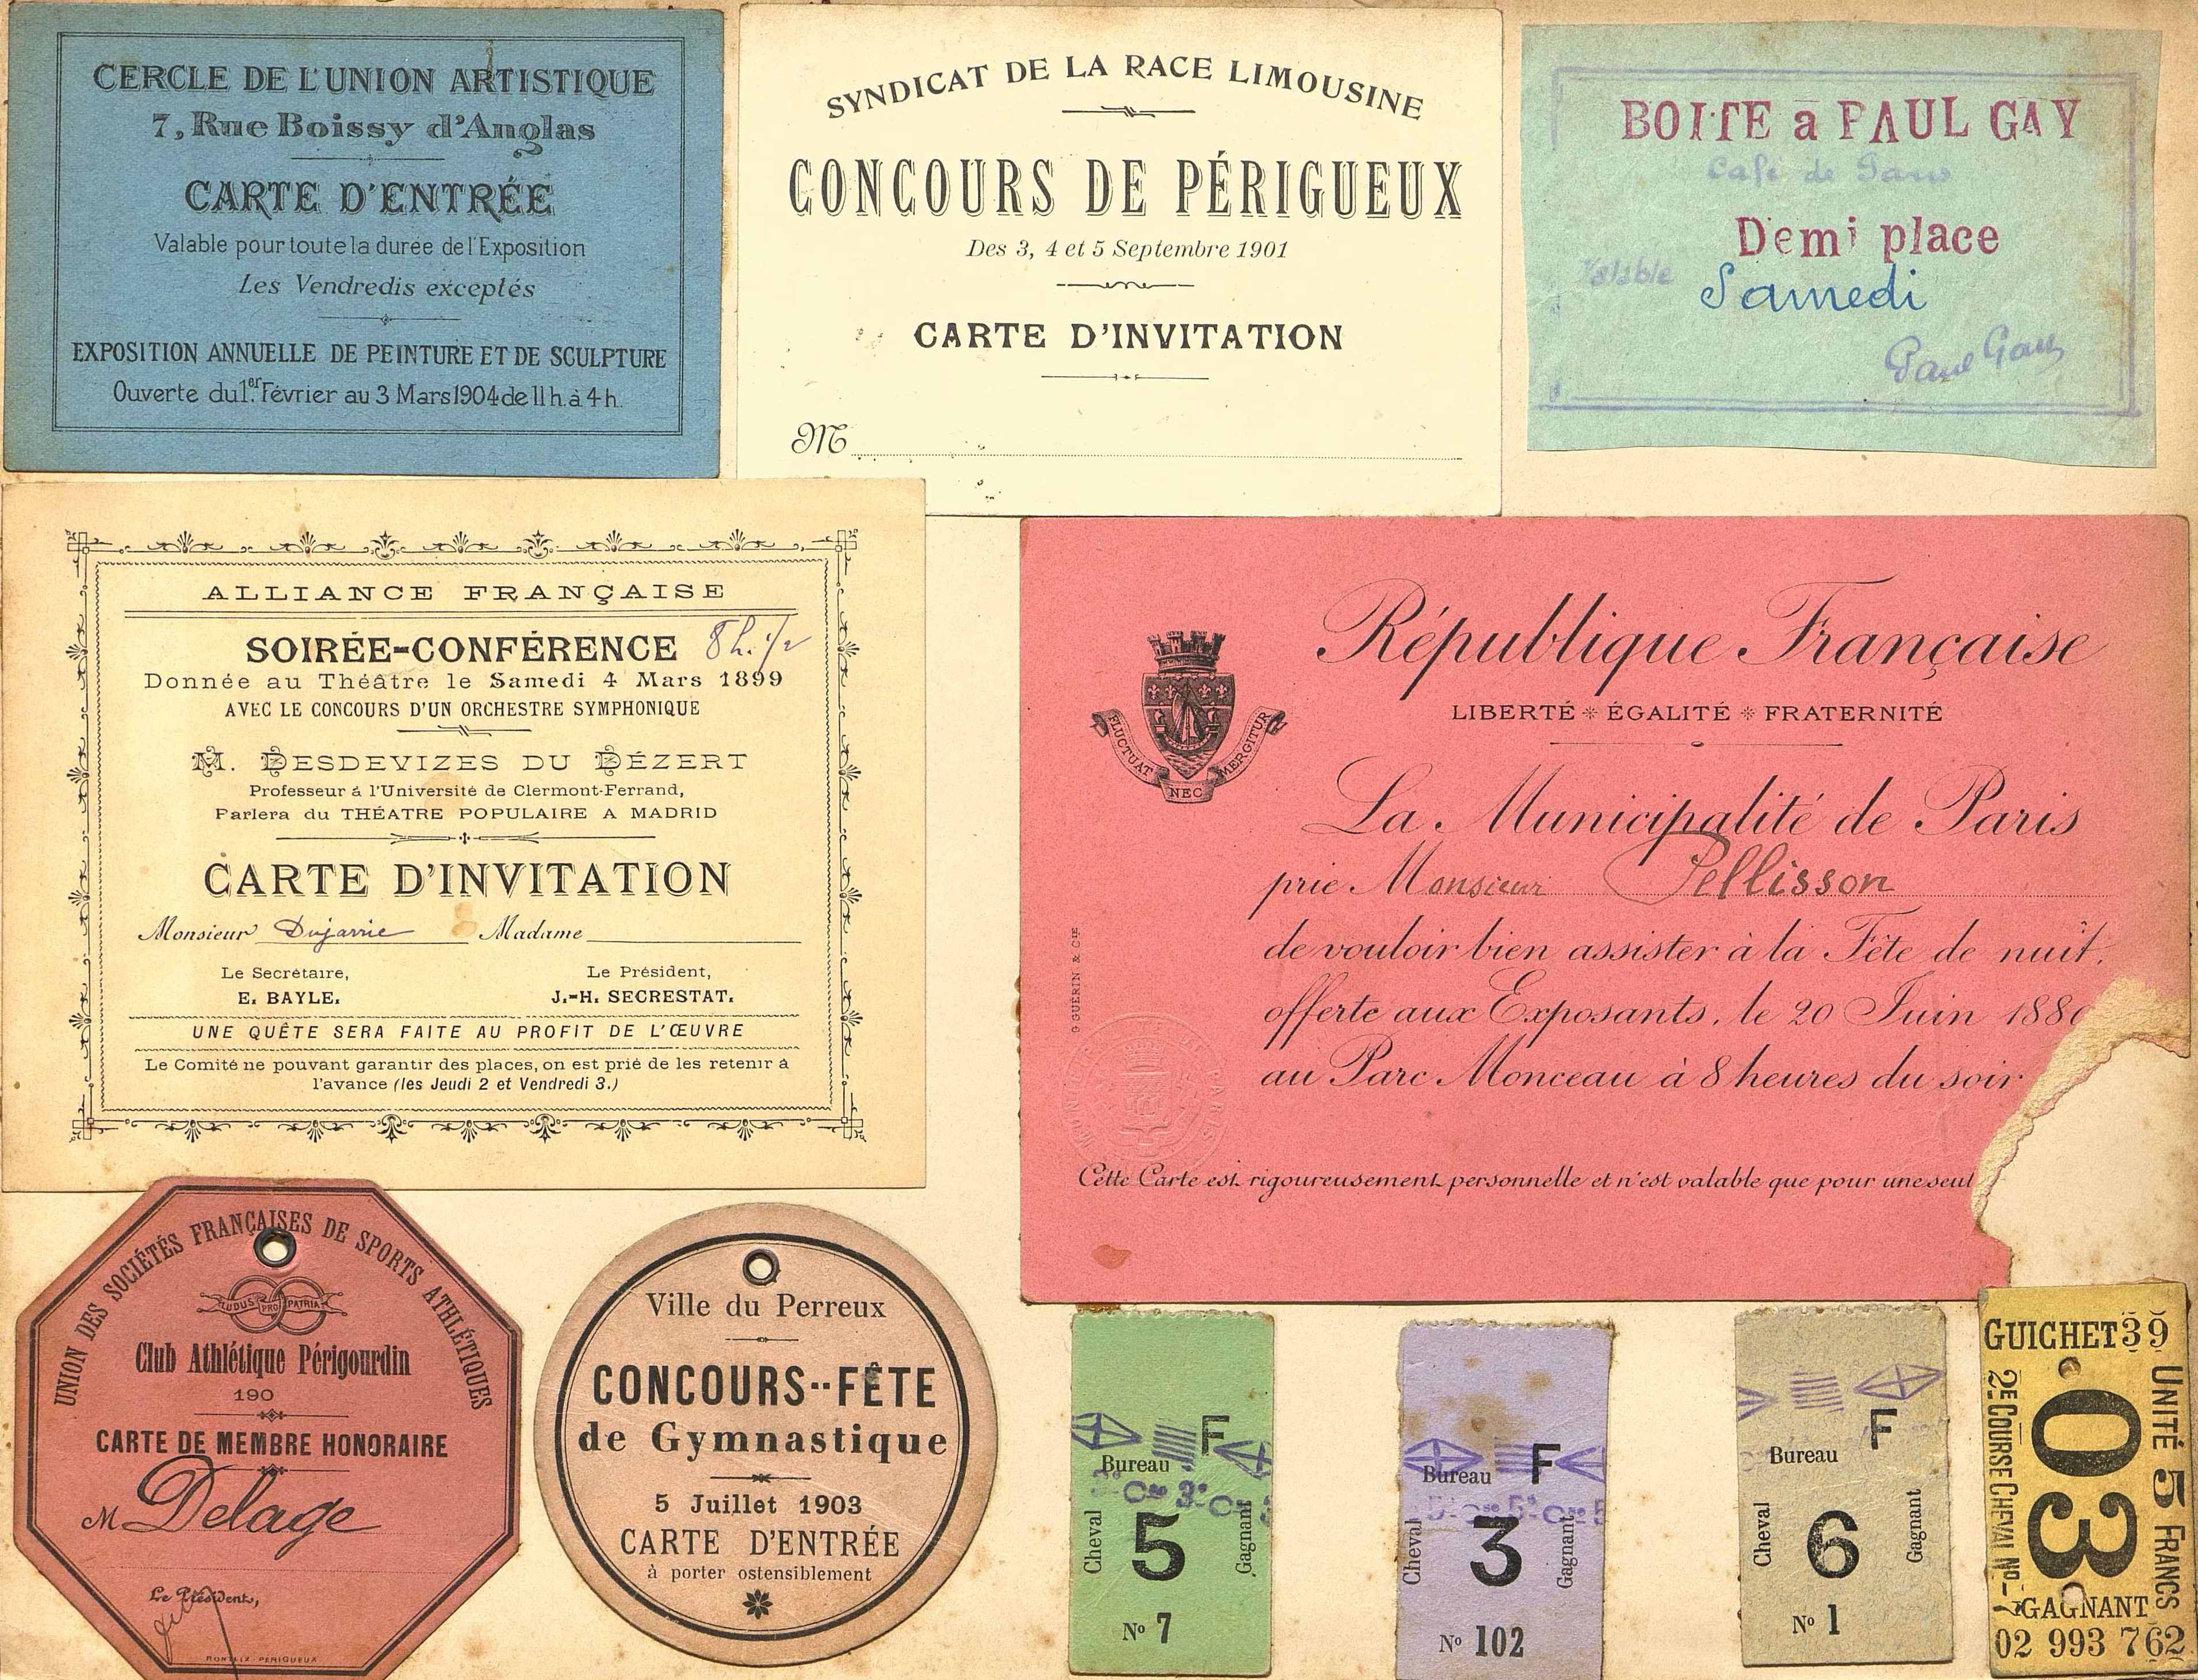 CERCLE DE L'UNION ARTISTIQUE
7, Rue Boissy d'Anglas
CARTE D'ENTRÉE
Valable pour toute la durée de l'Exposition
Les Vendredis exceptés
EXPOSITION ANNUELLE DE PEINTURE ET DE SCULPTURE
Ouverte du 1er Février au 3 Mars 1904 de 11 h. à 4 h.
SYNDICAT DE LA RACE LIMOUSINE
CONCOURS DE PÉRIGUEUX
Des 3, 4 et 5 Septembre 1901
CARTE D'INVITATION
M
BOITE à PAUL GAY
Café de Paris
Demi place
Valable
Samedi
Paul Gay
ALLIANCE FRANÇAISE
SOIRÉE-CONFÉRENCE 8 h. 1/2
Donnée au Théâtre le Samedi 4 Mars 1899
AVEC LE CONCOURS D'UN ORCHESTRE SYMPHONIQUE
M. DESDEVIZES DU DÉZERT
Professeur á l'Université de Clermont-Ferrand,
Parlera du THÉATRE POPULAIRE A MADRID
CARTE D'INVITATION
Monsieur Dujarric Madame
Le Secrétaire, Le Président,
E. BAYLE. J.-H. SECRESTAT.
UNE QUÊTE SERA FAITE AU PROFIT DE L'ŒUVRE
Le Comité ne pouvant garantir des places, on est prié de les retenir à
l'avance (les Jeudi 2 et Vendredi 3.)
République Française
LIBERTÉ * ÉGALITÉ * FRATERNITÉ
FLUCTUAT NEC MERGITUR
La Municipalité de Paris
prie Monsieur Pellisson
de vouloir bien assister à la Fête de nuit,
offerte aux Exposants, le 20 Juin 188
au Parc Monceau à 8 heures du soir
GUERIN & CIE
Cette Carte est rigoureusement personnelle et n'est valable que pour une seul
UNION DES SOCIÉTÉS FRANÇAISES DE SPORTS ATHLÉTIQUES
LUDUS PRO PATRIA
Club Athlétique Périgourdin
190
CARTE DE MEMBRE HONORAIRE
M Delage
Le Président,
PÉRIGUEUX
Ville du Perreux
CONCOURS-FÊTE
de Gymnastique
5 Juillet 1903
CARTE D'ENTRÉE
à porter ostensiblement
F
Bureau
Cheval 5 Gagnant
No 7
F
Bureau
Cheval 3 Gagnant
No 102
F
Bureau
Cheval 6 Gagnant
No 1
GUICHET 39
UNITÉ 5 FRANCS
03
2E COURSE CHEVAL No 7
GAGNANT
02 993 762